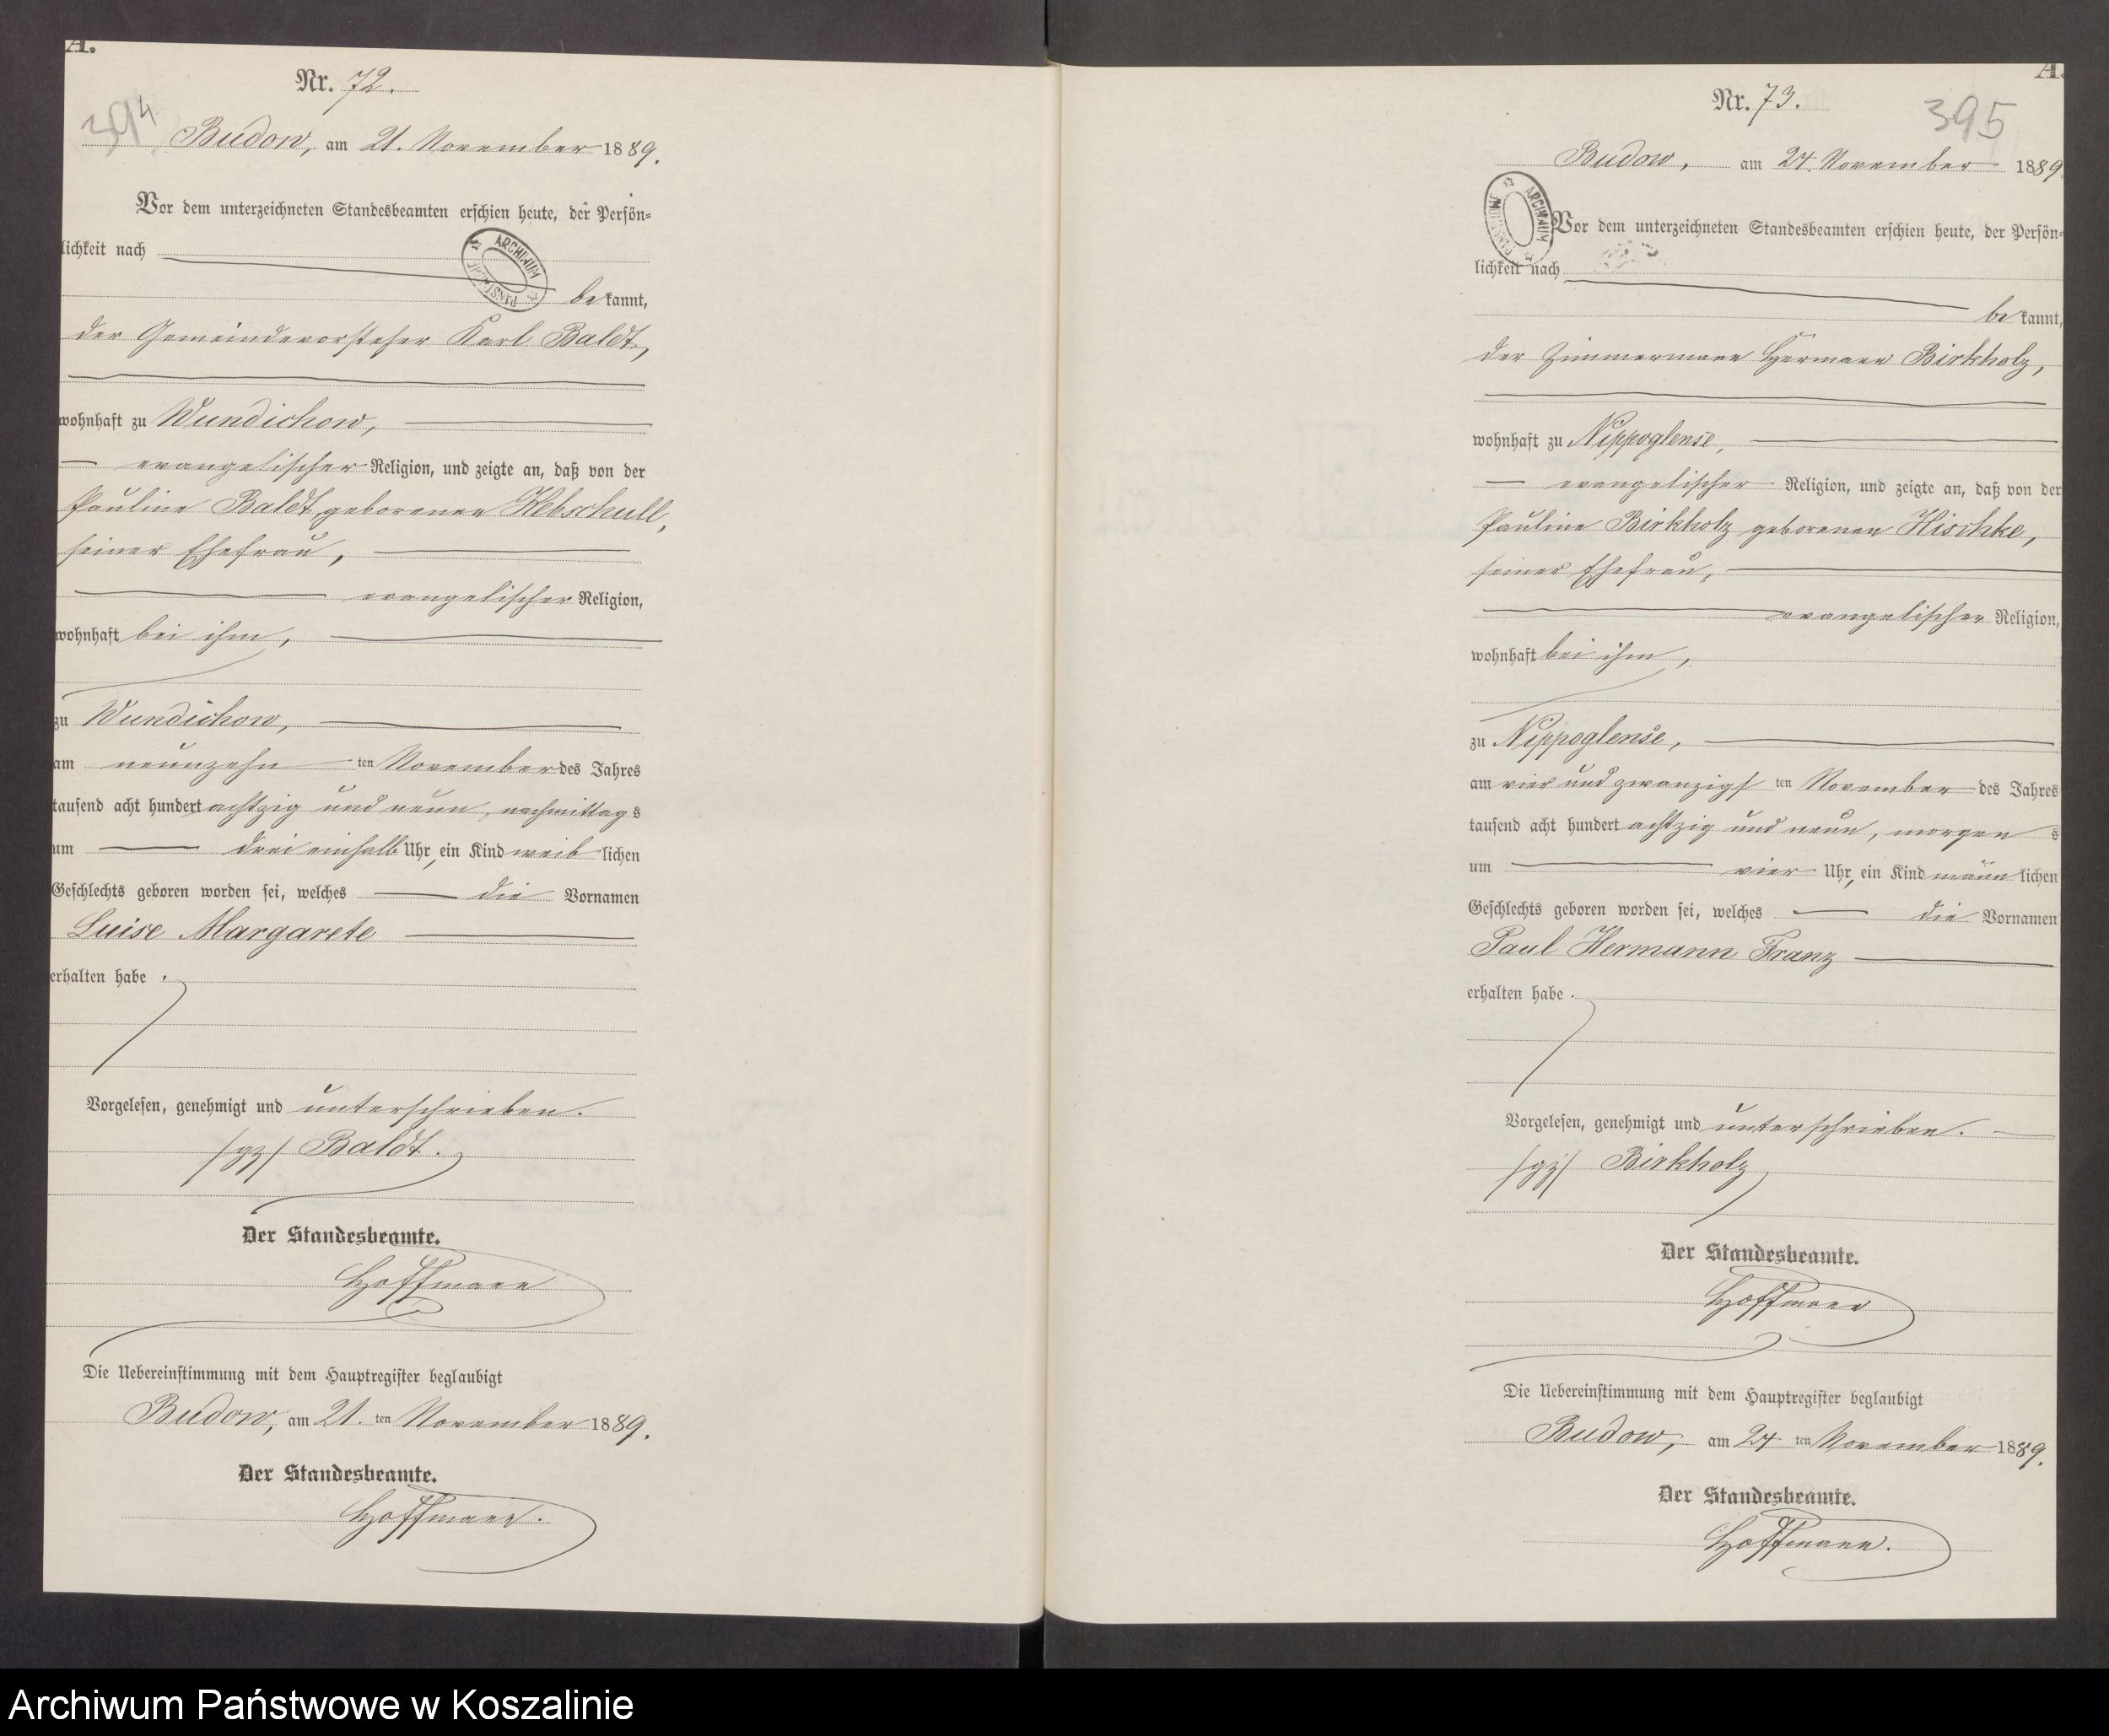 A.
Nr. 72.
394
Budow, am 21. November 1889.
Vor dem unterzeichneten Standesbeamten erschien heute, der Persön=
lichkeit nach
ARCHIWUM PAŃSTWOWE
bekannt,
der Gemeindevorsteher Karl Baldt,
wohnhaft zu Wundichow,
evangelischer Religion, und zeigte an, daß von der
Pauline Baldt, geborenen Klebschull,
seiner Ehefrau,
evangelischer Religion,
wohnhaft bei ihm,
zu Wundichow,
am neunzehn ten November des Jahres
tausend acht hundert achtzig und neun, nachmittags
um drei einhalb Uhr, ein Kind weiblichen
Geschlechts geboren worden sei, welches die Vornamen
Luise Margarete
erhalten habe.
Vorgelesen, genehmigt und unterschrieben.
/gz/ Baldt.
Der Standesbeamte.
Hoffmann
Die Uebereinstimmung mit dem Hauptregister beglaubigt
Budow, am 21. ten November 1889.
Der Standesbeamte.
Hoffmann.
A.
Nr. 73.
395
Budow, am 24. November 1889
ARCHIWUM PAŃSTWOWE
Vor dem unterzeichneten Standesbeamten erschien heute, der Persön=
lichkeit nach
bekannt,
der Zimmermann Hermann Birkholz,
wohnhaft zu Nippoglense,
evangelischer Religion, und zeigte an, daß von der
Pauline Birkholz geborenen Hischke,
seiner Ehefrau,
evangelischer Religion,
wohnhaft bei ihm,
zu Nippoglense,
am vier und zwanzigs ten November des Jahres
tausend acht hundert achtzig und neun, morgens
um vier Uhr, ein Kind männlichen
Geschlechts geboren worden sei, welches die Vornamen
Paul Hermann Franz
erhalten habe.
Vorgelesen, genehmigt und unterschrieben.
/gz/ Birkholz
Der Standesbeamte.
Hoffmann
Die Uebereinstimmung mit dem Hauptregister beglaubigt
Budow, am 24 ten November 1889.
Der Standesbeamte.
Hoffmann.
Archiwum Państwowe w Koszalinie